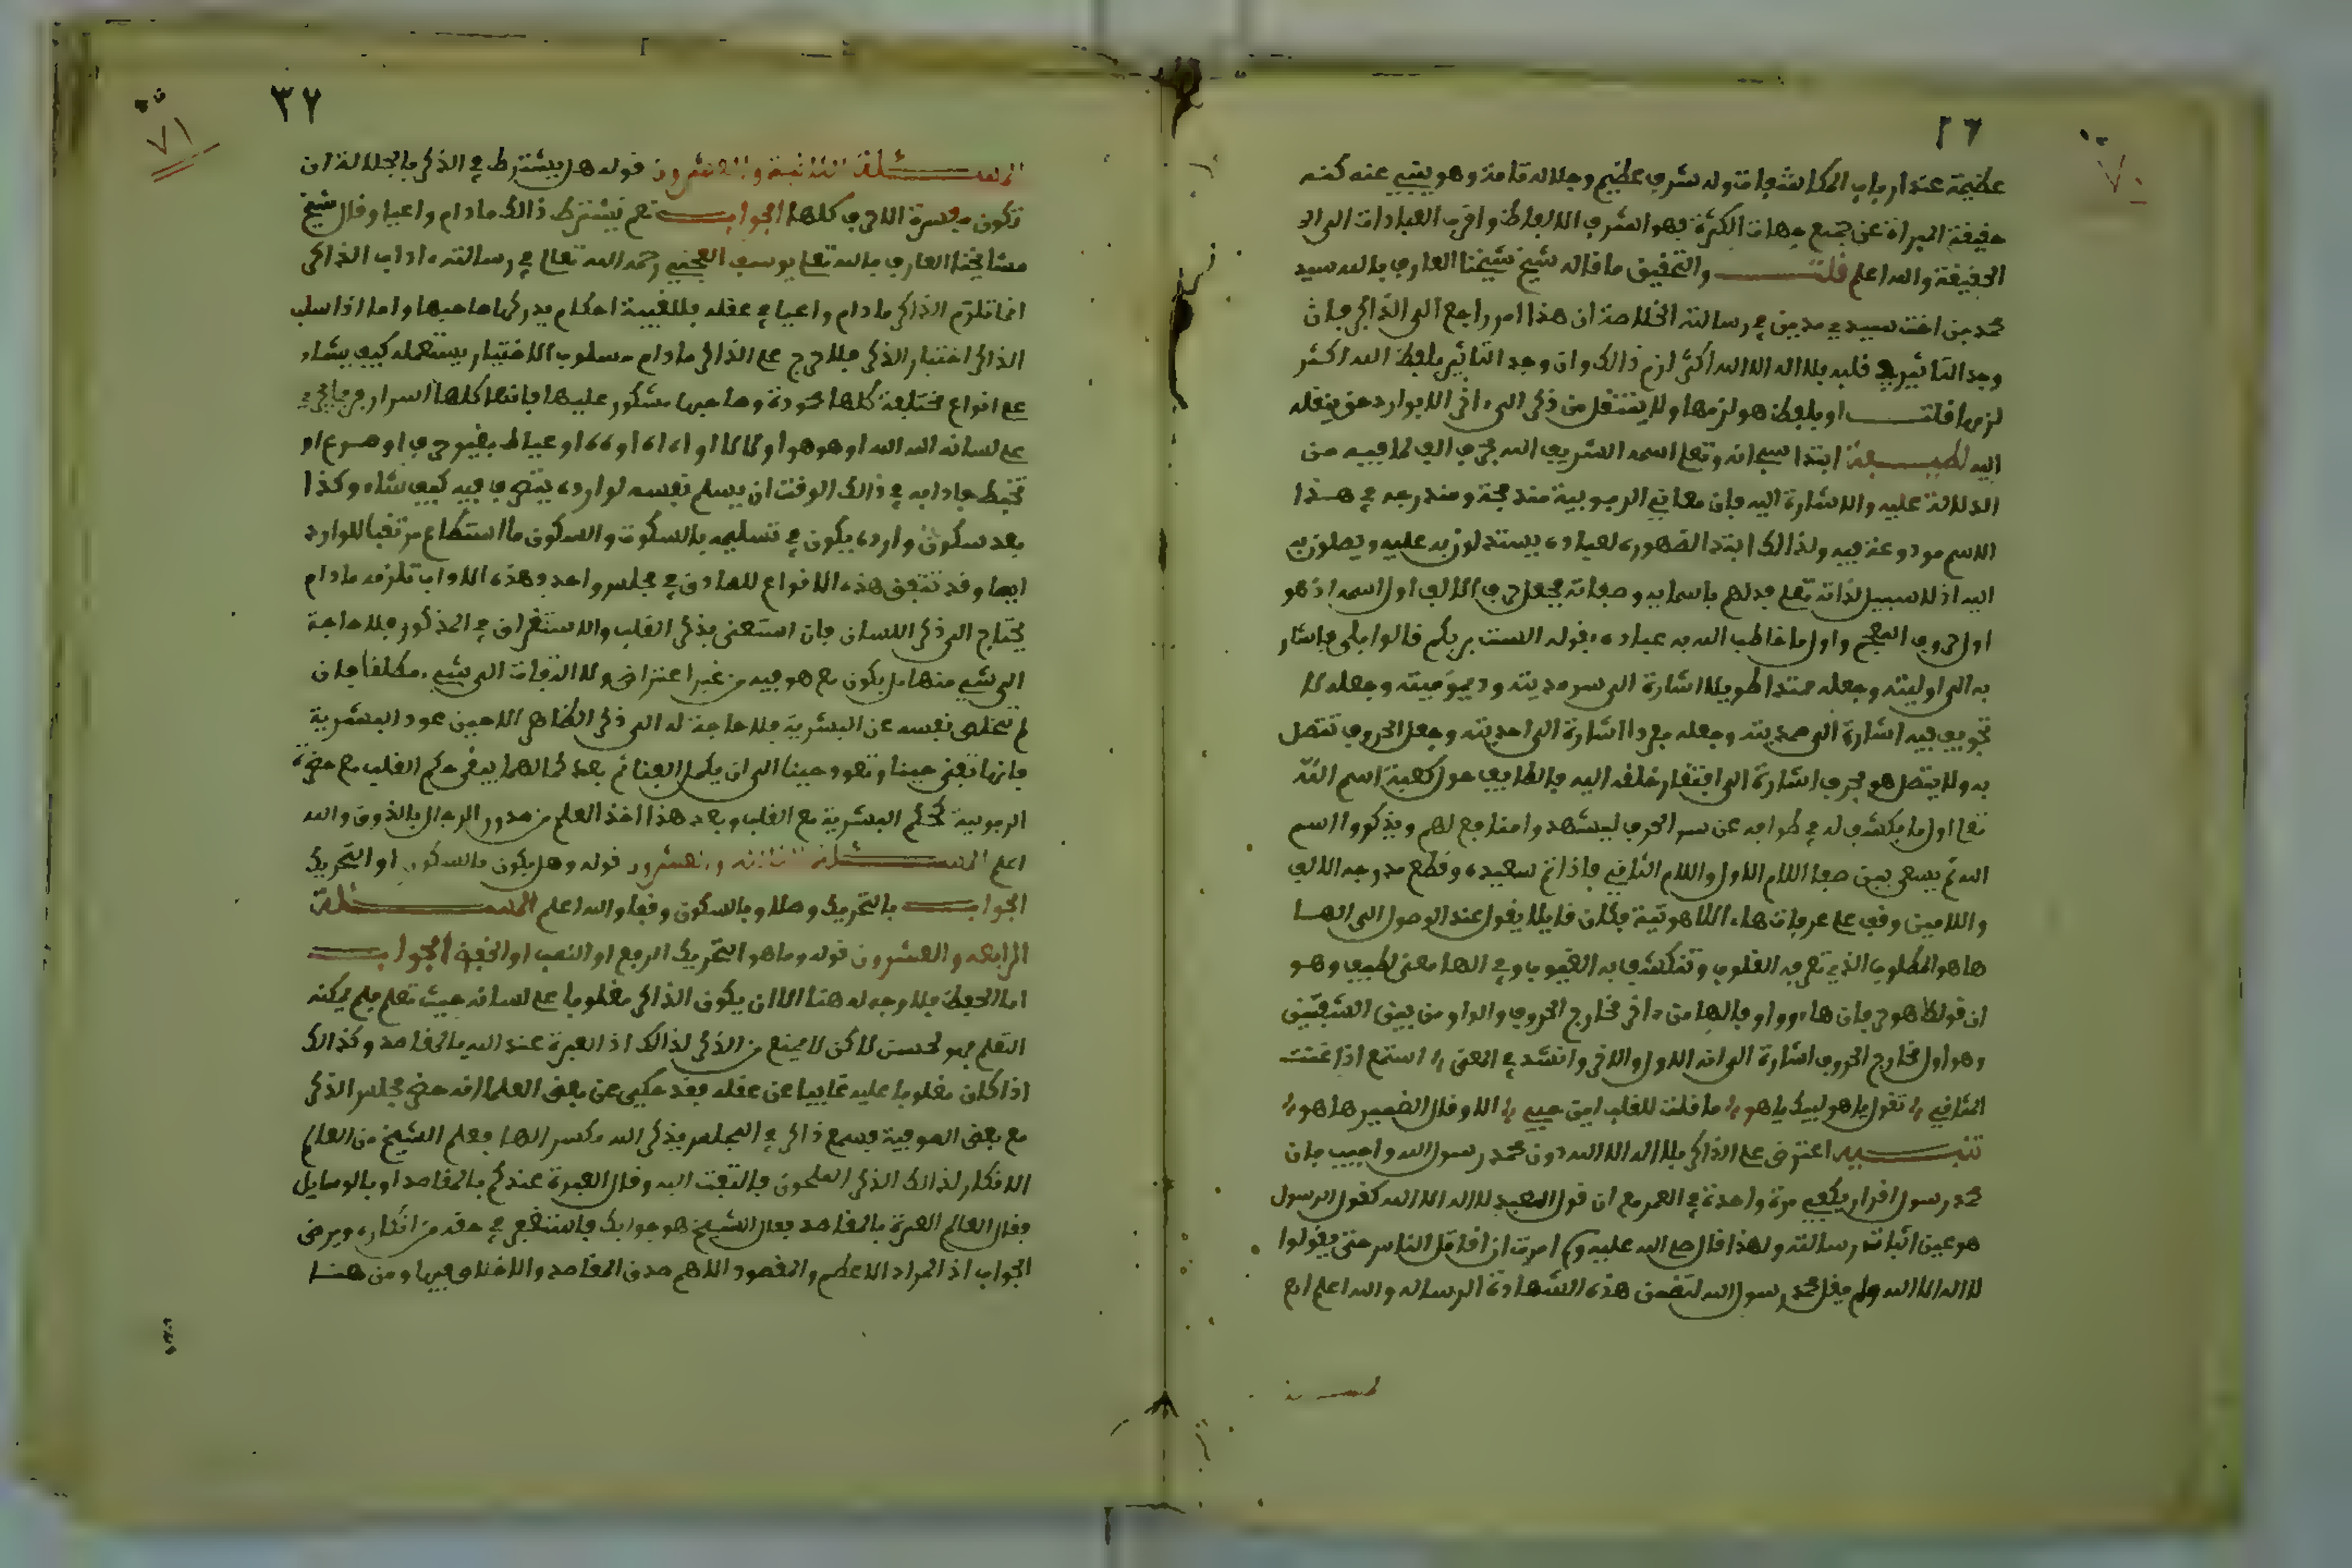 ٢٦
٧٠
عظيمة عند ارباب المكاشفات وله شرف عظيم وجلاله تامة وهو ينبي عنه كنه
حقيقة المبراة عن جميع جهات الكثرة فهو اشرف الالفاظ واقرب العبادات الى
الحقيقة والله اعلم قلت والتحقيق ما قاله شيخ شيخنا العارف بالله سيد
محمد بن اخت سيدي مدين في رسالته الخلاصة ان هذا امر راجع الى الذاكر فان
وجد التاثير في قلبه بلا اله الا الله اكثر لزم ذالك وان وجد التاثير بلفظ الله اكثر
لزمها قلت او بلفظ هو لزمها ولا ينتقل من ذكر الى اخر الا بوارد حق ينقله
اليه لطيفة ابتدا سبحانه وتعلى اسمه الشريف الله بحرف الف لما فيه من
الدلالة عليه والاشارة اليه فان معاني الربوبية مندمجة ومندرجه في هذا
الاسم مودوعة فيه ولذالك ابتدا لظهوره لعباده يستدلون به عليه ويصلون به
اليه اذ لا سبيل لذاته تعلى فدلهم باسمايه وصفاته فجعل حرف الالف اول اسمه اذ هو
اول حروف المعجم واول ما خاطب الله به عباده بقوله الست بربكم قالوا بلى فاشار
به الى اوليته وجعله ممتدا طويلا اشارة الى سرمديته وديموميته وجعله لا
تجويف فيه اشارة الى صمديته وجعله مفردا اشارة الى احديته وجعل الحروف تتصل
به ولا يتصل هو بحرف اشارة الى افتقار خلقه اليه فالطايف حول كعبة اسم الله
تعلى اول ما يكشف له في طوافه عن سر الحرف ليشهدوا منافع لهم ويذكروا اسم
الله ثم يسعى بين صفا اللام الاول واللام الثاني فاذا تم سعيه وقطع مدرجه الالف
واللامين وقف على عرفات هاء اللاهوتية فكان قايلا يقول عند الوصول الى الها
ها هو المطلوب الذي تعرفه القلوب وتنكشف به الغيوب وفي الها معنى لطيف وهو
ان قولك هو حرفان هاء وواو فالها من اخر مخارج الحروف والواو من بين الشفتين
وهو اول مخارج الحروف اشارة الى انه الاول والاخر وانشد في المعنى استمع اذا غنت
المثاني تقول يا هو لبيك يا هو ما قلت للقلب اين حبي الا وقال الضمير ها هو
تنبيه اعترض على الذاكر بلا اله الا الله دون محمد رسول الله واجيب بان
محمد رسول اقرار يكفي مرة واحدة في العمر مع ان قول العبد لا اله الا الله كقول الرسول
هو عين اثبات رسالته ولهذا قال صلى الله عليه وسلم امرت ان اقاتل الناس حتى يقولوا
لا اله الا الله ولم يقل محمد رسول الله لتضمن هذه الشهادة الرساله والله اعلم
٣٧
٧١
المسئلة الثانية والعشرون قوله هل يشترط في الذكر بالجلالة ان
تكون ميسرة الاحرف كلها الجواب نعم يشترط ذالك ما دام واعيا وقال شيخ
مشايخنا العارف بالله تعلى يوسف العجمي رحمه الله تعالى في رسالته اداب الذاكر
انما تلزم الذاكر ما دام واعيا في عقله فللغيبة احكام يدركها صاحبها واما اذا سلب
الذاكر اختيار الذكر فلا حرج على الذاكر ما دام مسلوب الاختيار يستعمله كيف يشاء
على انواع مختلفة كلها محمودة وصاحبها مشكور عليها فانها كلها اسرار فربما يجري
على لسانه الله الله او هو هو او لا لا لا او اه اه او عياط بغير حرف او صرع او
تخبط فادابه في ذالك الوقت ان يسلم نفسه لوارده يتصرف فيه كيف شاء وكذا
بعد سكون وارده يكون في تسليمه بالسكوت والسكون ما استطاع مرتقبا للوارد
ايضا وقد تتفق هذه الانواع للصادق في مجلس واحد وهذه الاداب تلزمه ما دام
يحتاج الى ذكر اللسان فان استغنى بذكر القلب والاستغراق في المذكور فلا حاجة
الى شيء منها بل يكون مع هو فيه من غير اعتراض ولا التفات الى شيء مطلقا فان
لم تتخلص نفسه عن البشرية فلا حاجة له الى ذكر الظاهر الا حين عود البشرية
فانها تفنى حينا وتعود حينا الى ان يكمل الفنا ثم بعد كمالهما يبقى حكم القلب مع حضرة
الربوبية كحكم البشرية مع القلب وبعد هذا اخذ العلم من صدور الرجال بالذوق والله
اعلم المسئلة الثالثه والعشرون قوله وهل يكون بالسكون او التحريك
الجواب بالتحريك وصلا وبالسكون وقفا والله اعلم المسئلة
الرابعه والعشرون قوله وما هو التحريك الرفع او النصب او الخفض الجواب
اما الخفض فلا وجه له هنا الا ان يكون الذاكر مغلوبا على لسانه حيث تعلم فلم يمكنه
التعلم فهو لحسن لاكن لا يمنع من الذكر لذالك اذ العبرة عند الله بالمقاصد وكذالك
اذا كان مغلوبا عليه غايبا عن عقله فقد حكيى عن بعض العلما انه حضر مجلس الذكر
مع بعض الصوفية فسمع ذاكر في المجلس يذكر الله بكسر الها فعلم الشيخ من العالم
الانكار لذالك الذكر الملحون فالتفت اليه وقال العبرة عندكم بالمقاصد او بالوسايل
فقال العالم العبرة بالمقاصد فقال الشيخ هو جوابك فاستغفر في حقه من انكاره ورضى
الجواب اذ المراد الاعظم والمقصود الاهم صدق المقاصد والاخلاص فيها ومن هنا